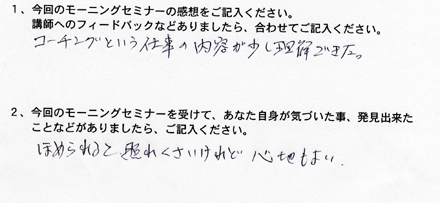 1、今回のモーニングセミナーの感想をご記入ください。
講師へのフィードバックなどありましたら、合わせてご記入ください。
コーチングという仕事の内容が少し理解できた。
2、今回のモーニングセミナーを受けて、あなた自身が気づいた事、発見出来た
ことなどがありましたら、ご記入ください。
ほめられると照れくさいけれど 心地もよい.